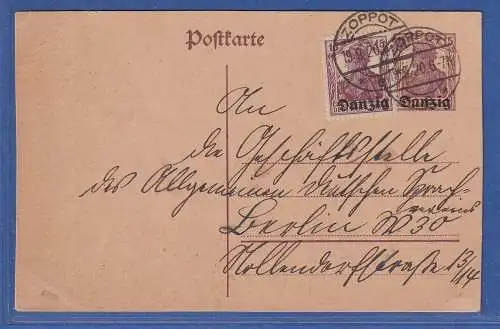 Postkarte
ZOPPOT
ZOPPOT
Danzig
Danzig
An
die Geschäftsstelle
des Allgemeinen deutschen Sprach-
vereins
Berlin W 30
Nollendorfstraße 13/14